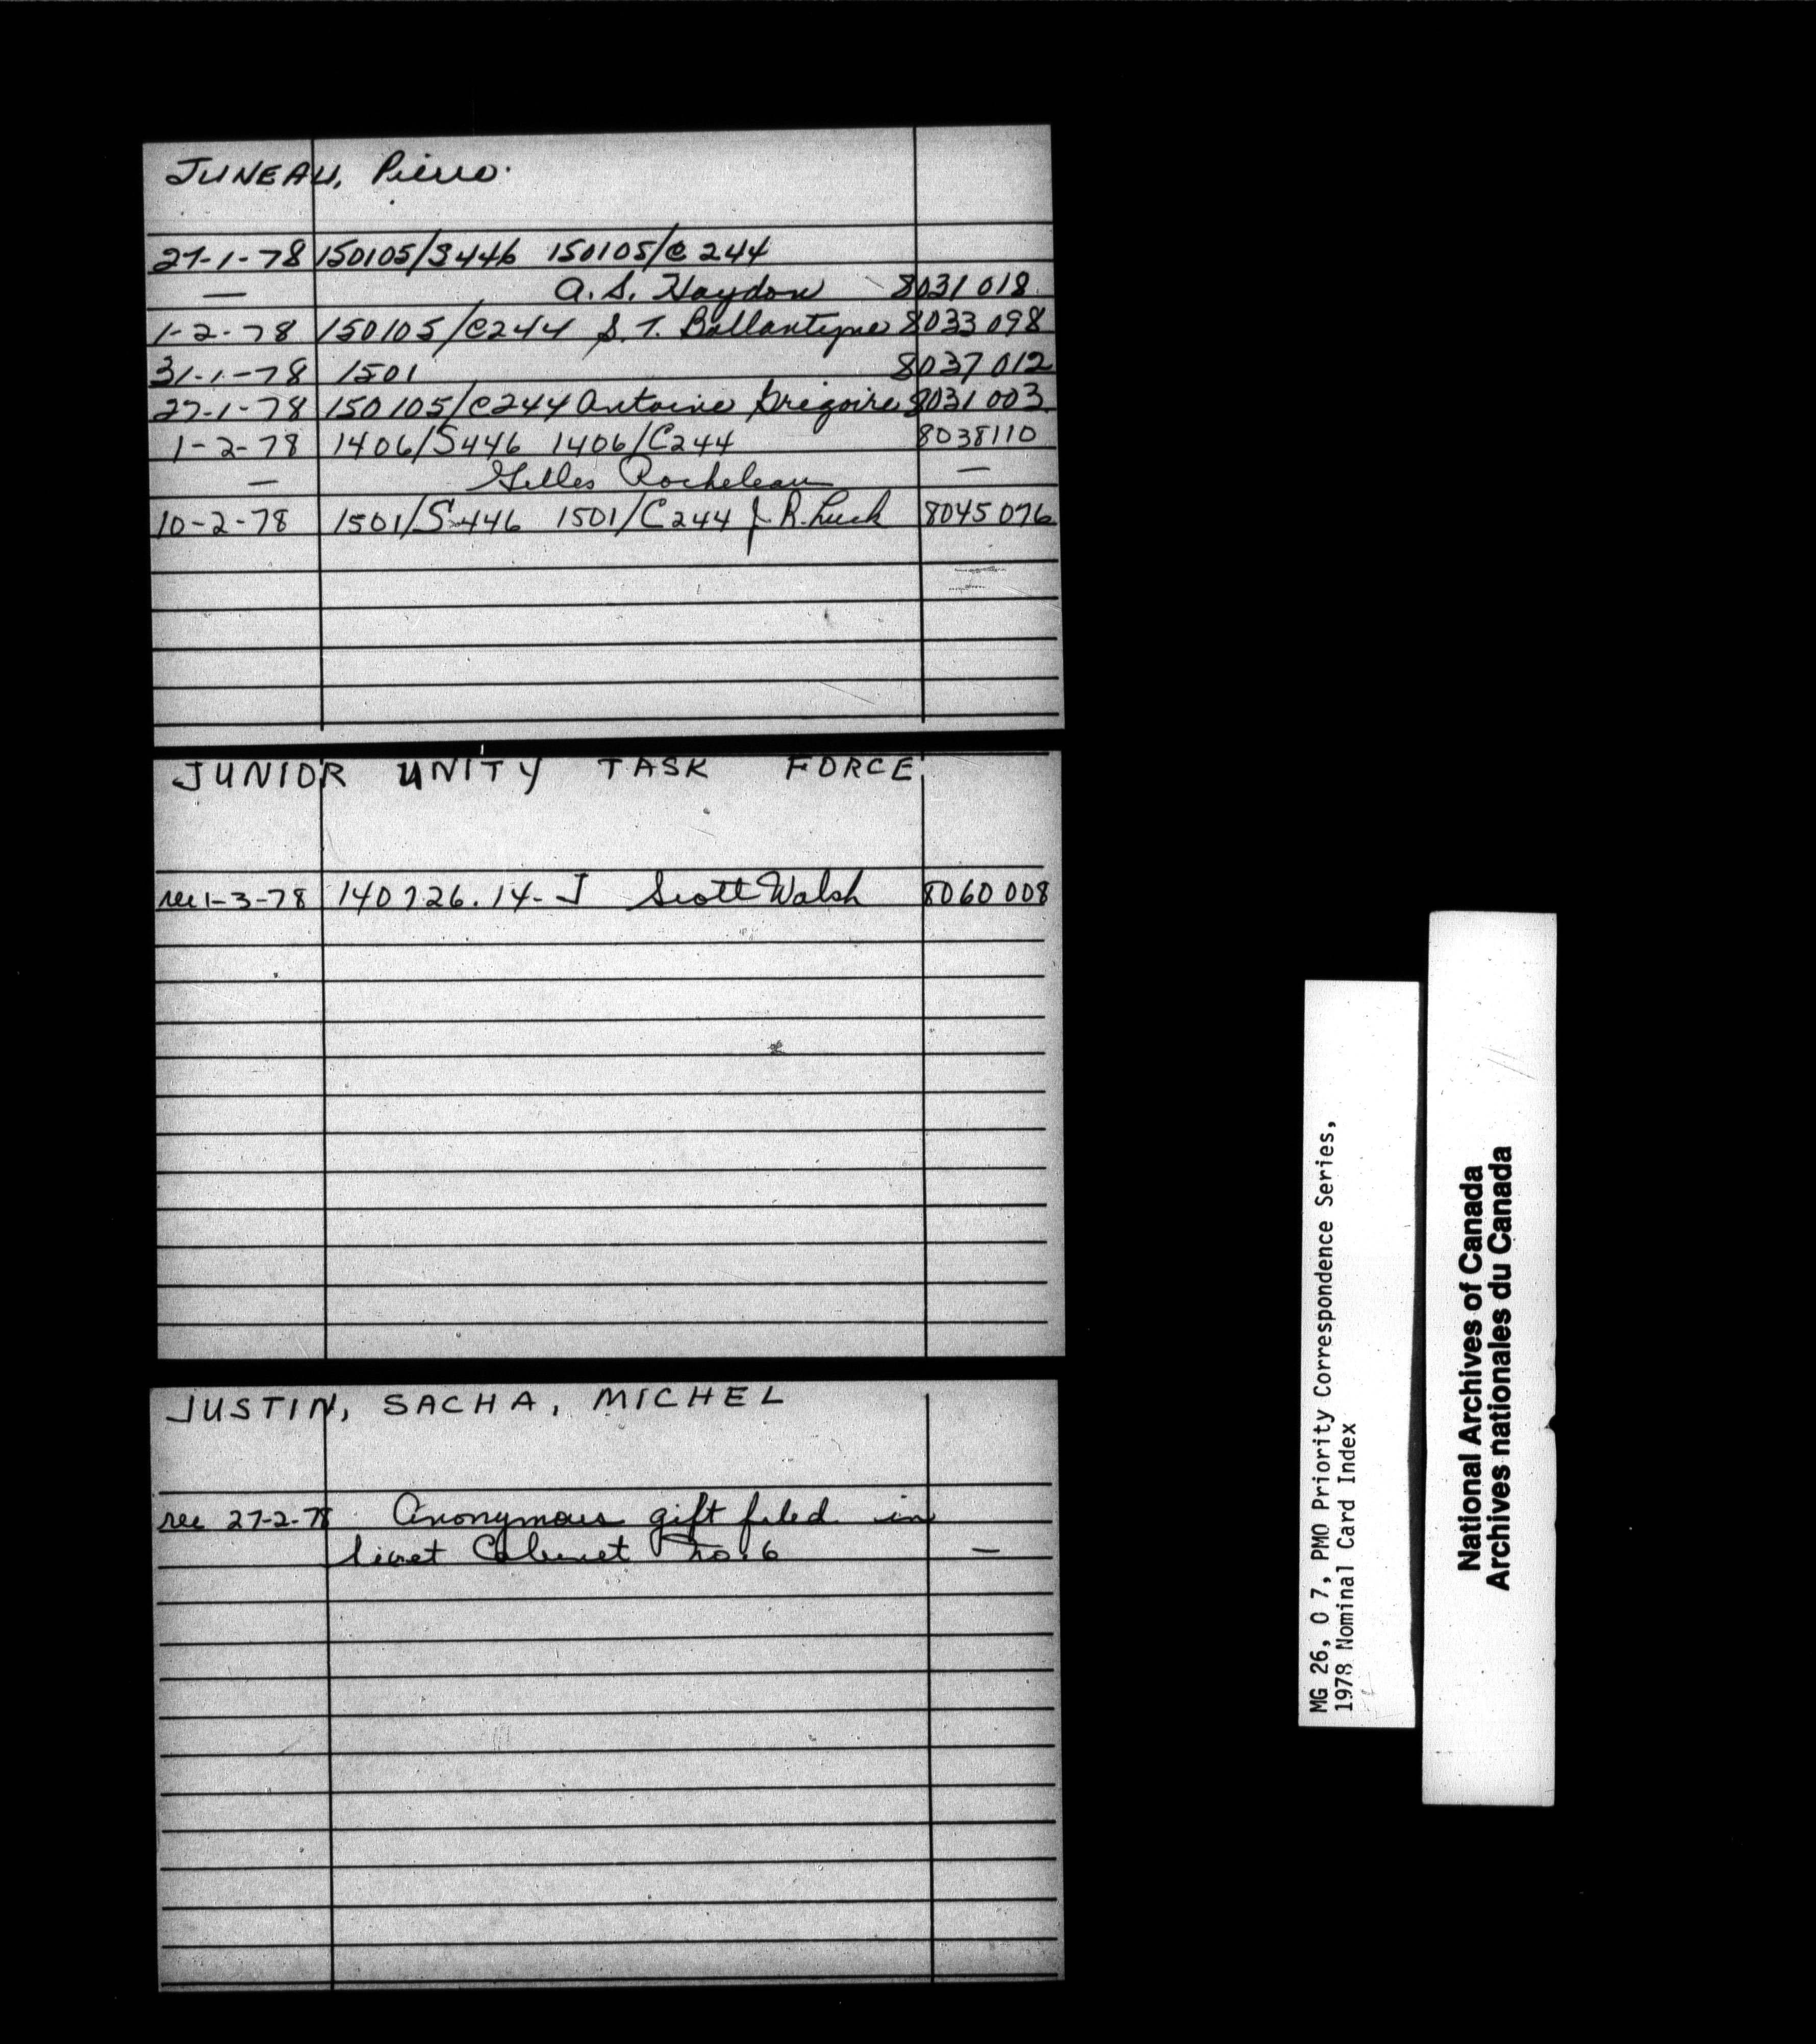 JUNEAU, Pierre.
27-1-78 150105/S446 150105/C244
— A. S. Haydon 8031 018
1-2-78 150105/C244 S. T. Ballantyne 8033 098
31-1-78 1501 8037 012
27-1-78 150105/C244 Antoine Grégoire 8031 003
1-2-78 1406/S446 1406/C244 8038110
— Gilles Rocheleau —
10-2-78 1501/S446 1501/C244 J. R. Luck 8045 076
JUNIOR UNITY TASK FORCE
rec 1-3-78 140726.14-J Scott Walsh 8060 008
JUSTIN, SACHA, MICHEL
rec 27-2-78 Anonymous gift filed in
Secret Cabinet No. 6 —
MG 26, O 7, PMO Priority Correspondence Series,
1978 Nominal Card Index
National Archives of Canada
Archives nationales du Canada